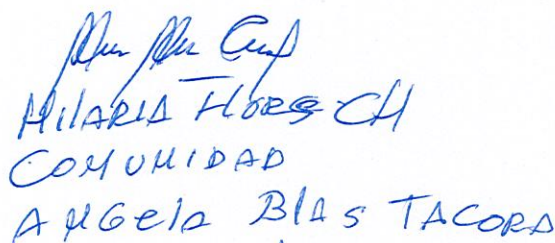 HILARIA FLORES CH
COMUNIDAD
ANGELA BLAS TACORA